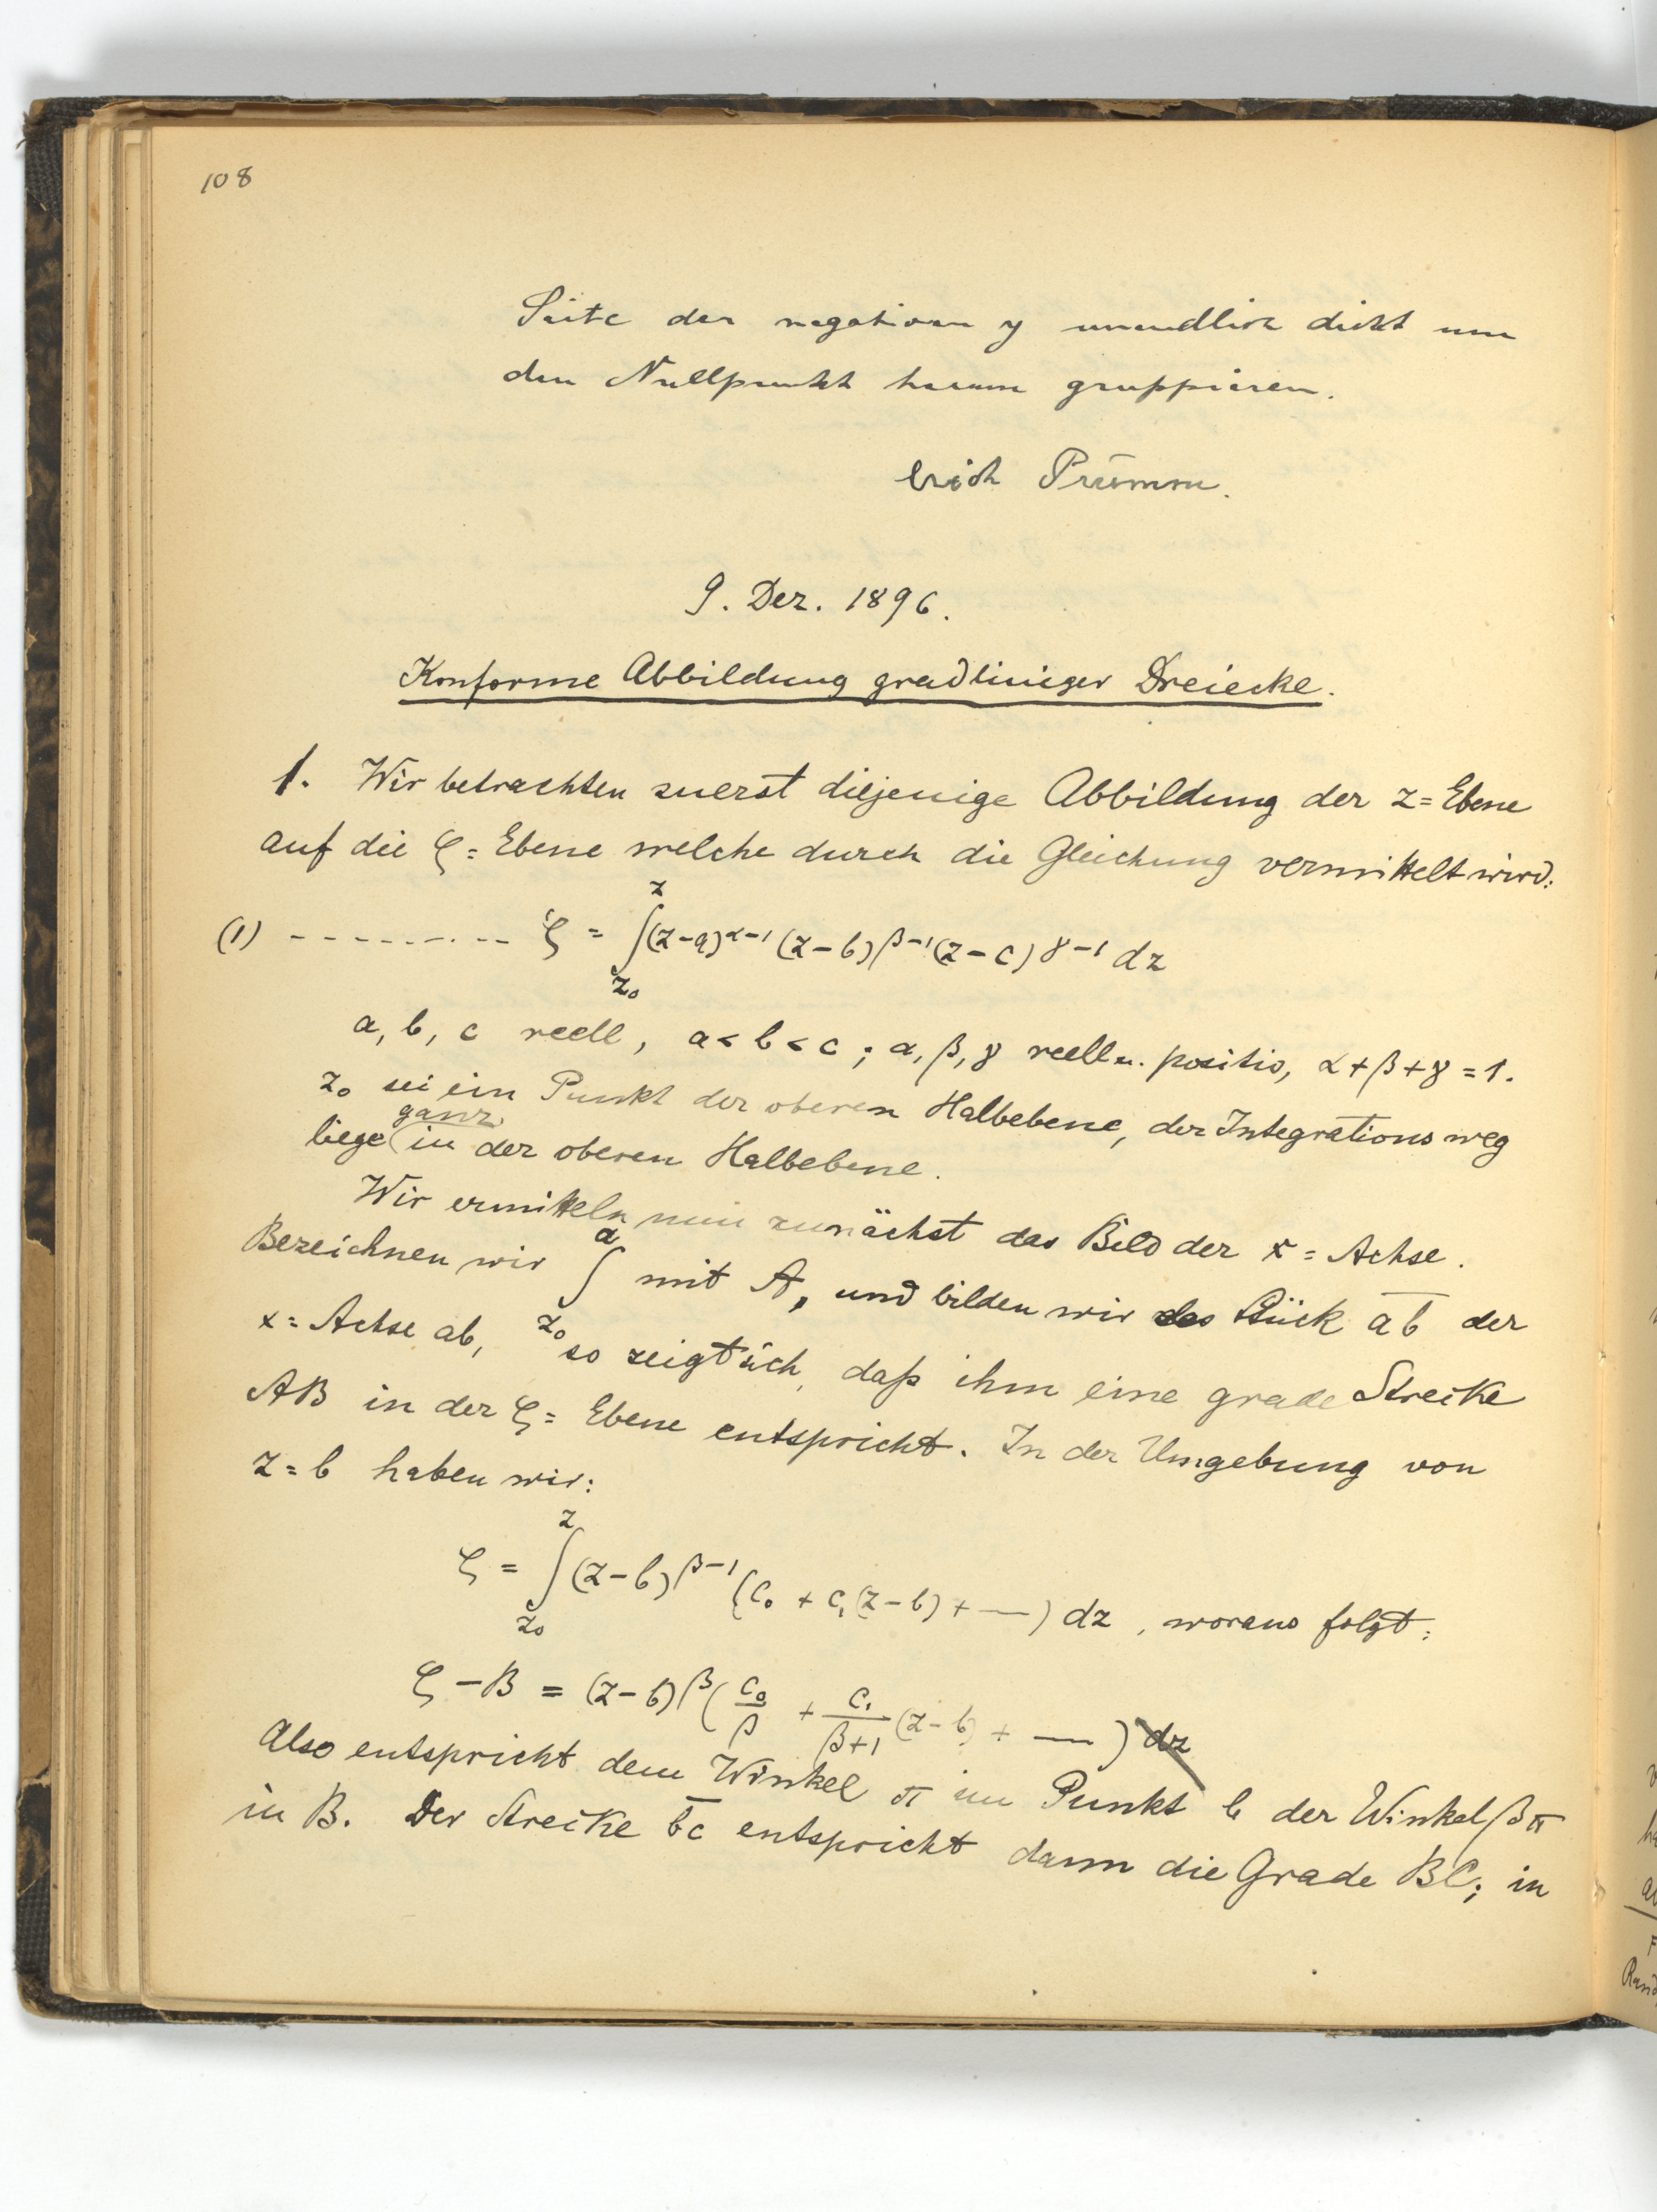 108
Seite der negativen y unendlich dicht um
den Nullpunkt herum gruppieren.
Erich Prümm.
9. Dez. 1896.
Konforme Abbildung gradliniger Dreiecke.
1. Wir betrachten zuerst diejenige Abbildung der z=Ebene
auf die ζ=Ebene welche durch die Gleichung vermittelt wird:
(1) ---------- ζ = ∫_{z₀}^{z} (z-a)^{α-1} (z-b)^{β-1} (z-c)^{γ-1} dz
a, b, c reell, a<b<c; α, β, γ reell u. positiv, α+β+γ=1.
z₀ sei ein Punkt der oberen Halbebene, der Integrationsweg
liege ganz in der oberen Halbebene.
Wir ermitteln nun zunächst das Bild der x=Achse.
Bezeichnen wir ∫_{z₀}^{a} mit A, und bilden wir das Stück a̅b̅ der
x=Achse ab, so zeigt sich, daß ihm eine grade Strecke
AB in der ζ=Ebene entspricht. In der Umgebung von
z=b haben wir:
ζ = ∫_{z₀}^{z} (z-b)^{β-1} (c₀ + c₁(z-b) + —) dz, woraus folgt:
ζ-B = (z-b)^β (c₀/β + c₁/(β+1) (z-b) + —) dz
Also entspricht dem Winkel π im Punkt b der Winkel βπ
in B. Der Strecke b̅c̅ entspricht dann die Grade BC; in